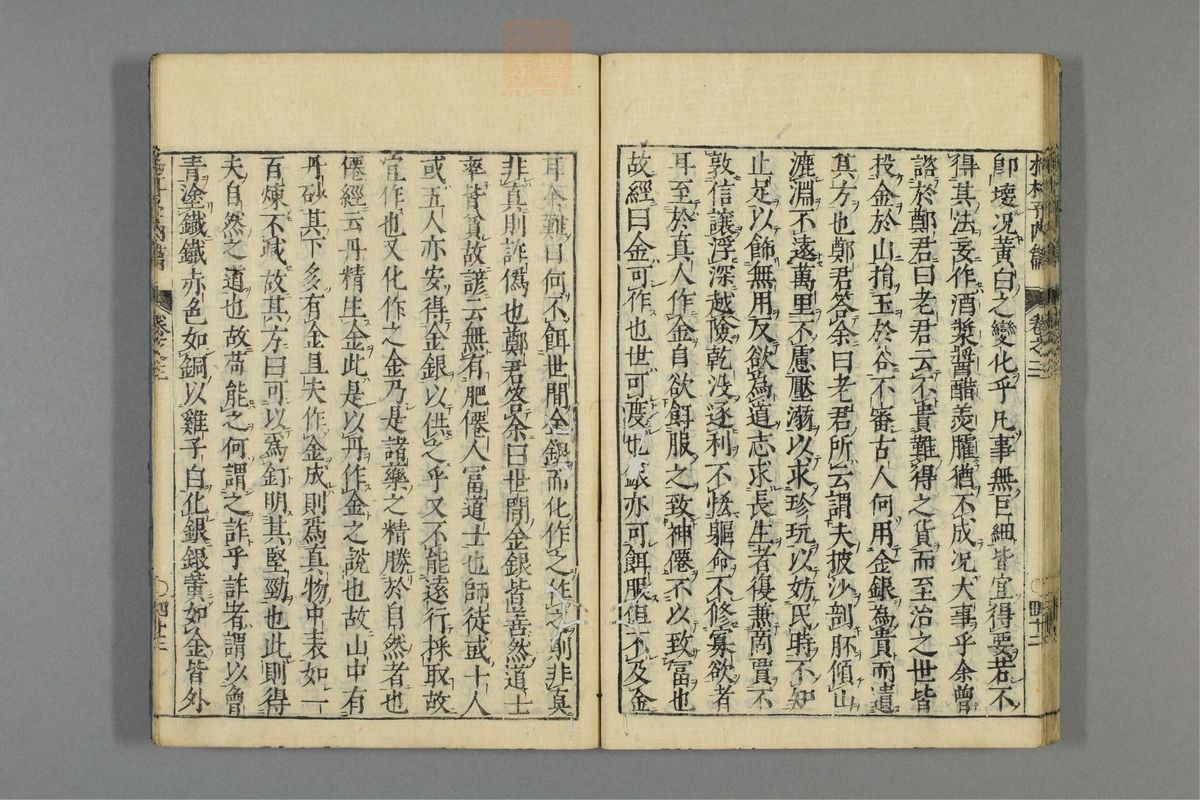 抱朴子內篇 卷之三 ○四十二
卽壞况黃白之變化乎凡事無巨細皆宜得要若不
得其法妄作酒漿醬醋羹臛猶不成况大事乎余曾
諮於鄭君曰老君云不貴難得之貨而至治之世皆
投金於山捐玉於谷不審古人何用金銀為貴而遺
其方也鄭君答余曰老君所云謂夫披沙剖胚傾山
漉淵不遠萬里不慮壓溺以求珍玩以妨民時不知
止足以飾無用及欲為道志求長生者復兼商賈不
敦信讓浮深越險乾没逐利不恡軀命不修寡欲者
耳至於真人作金自欲餌服之致神僊不以致富也
故經曰金可作也世可度也銀亦可餌服但不及金
耳余難曰何不餌世間金銀而化作之作之則非真
非真則詐僞也鄭君答余曰世間金銀皆善然道士
率皆貧故諺云無有肥僊人冨道士也師徒或十人
或五人亦安得金銀以供之乎又不能遠行採取故
宜作也又化作之金乃是諸藥之精勝於自然者也
僊經云丹精生金此是以丹作金之說也故山中有
丹砂其下多有金且夫作金成則爲真物中表如一
百煉不减故其方曰可以爲釘明其堅勁也此則得
夫自然之道也故苟能之何謂之詐乎詐者謂以曾
青塗鐵鐵赤色如銅以雞子白化銀銀黄如金皆外
卷之三 ○四十三